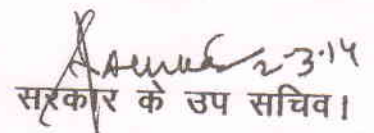 2-3-14
सरकार के उप सचिव।